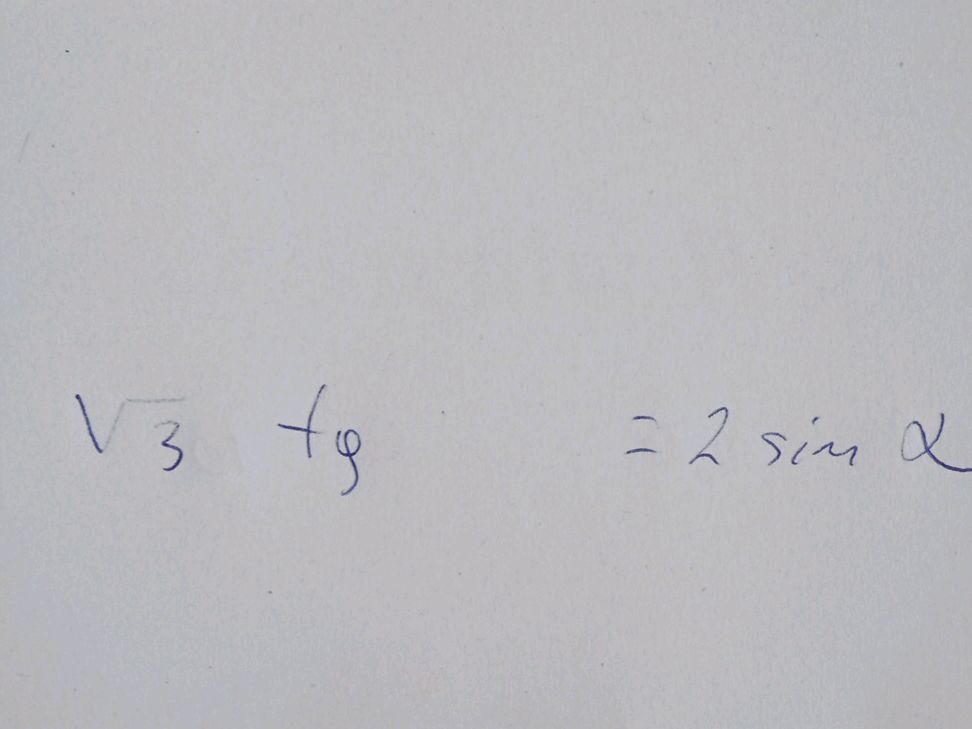 √3 tg = 2 sin α